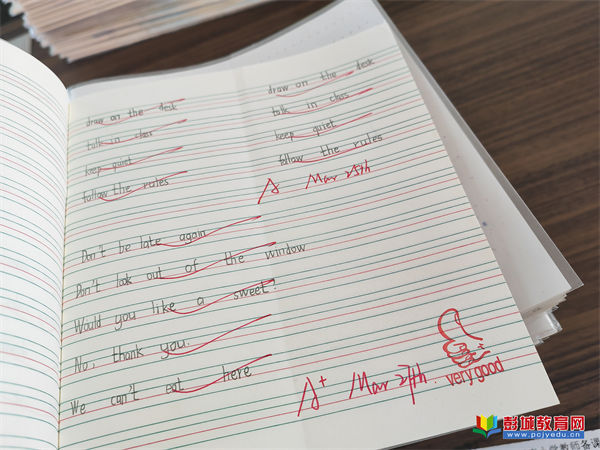 draw on the desk
talk in class
keep quiet
follow the rules
draw on the desk
talk in class
keep quiet
follow the rules
A Mar 25th
Don't be late again.
Don't look out of the window
Would you like a sweet?
No, thank you.
We can't eat here
A+ Mar 27th.
very good
彭城教育网
www.pcjyedu.cn